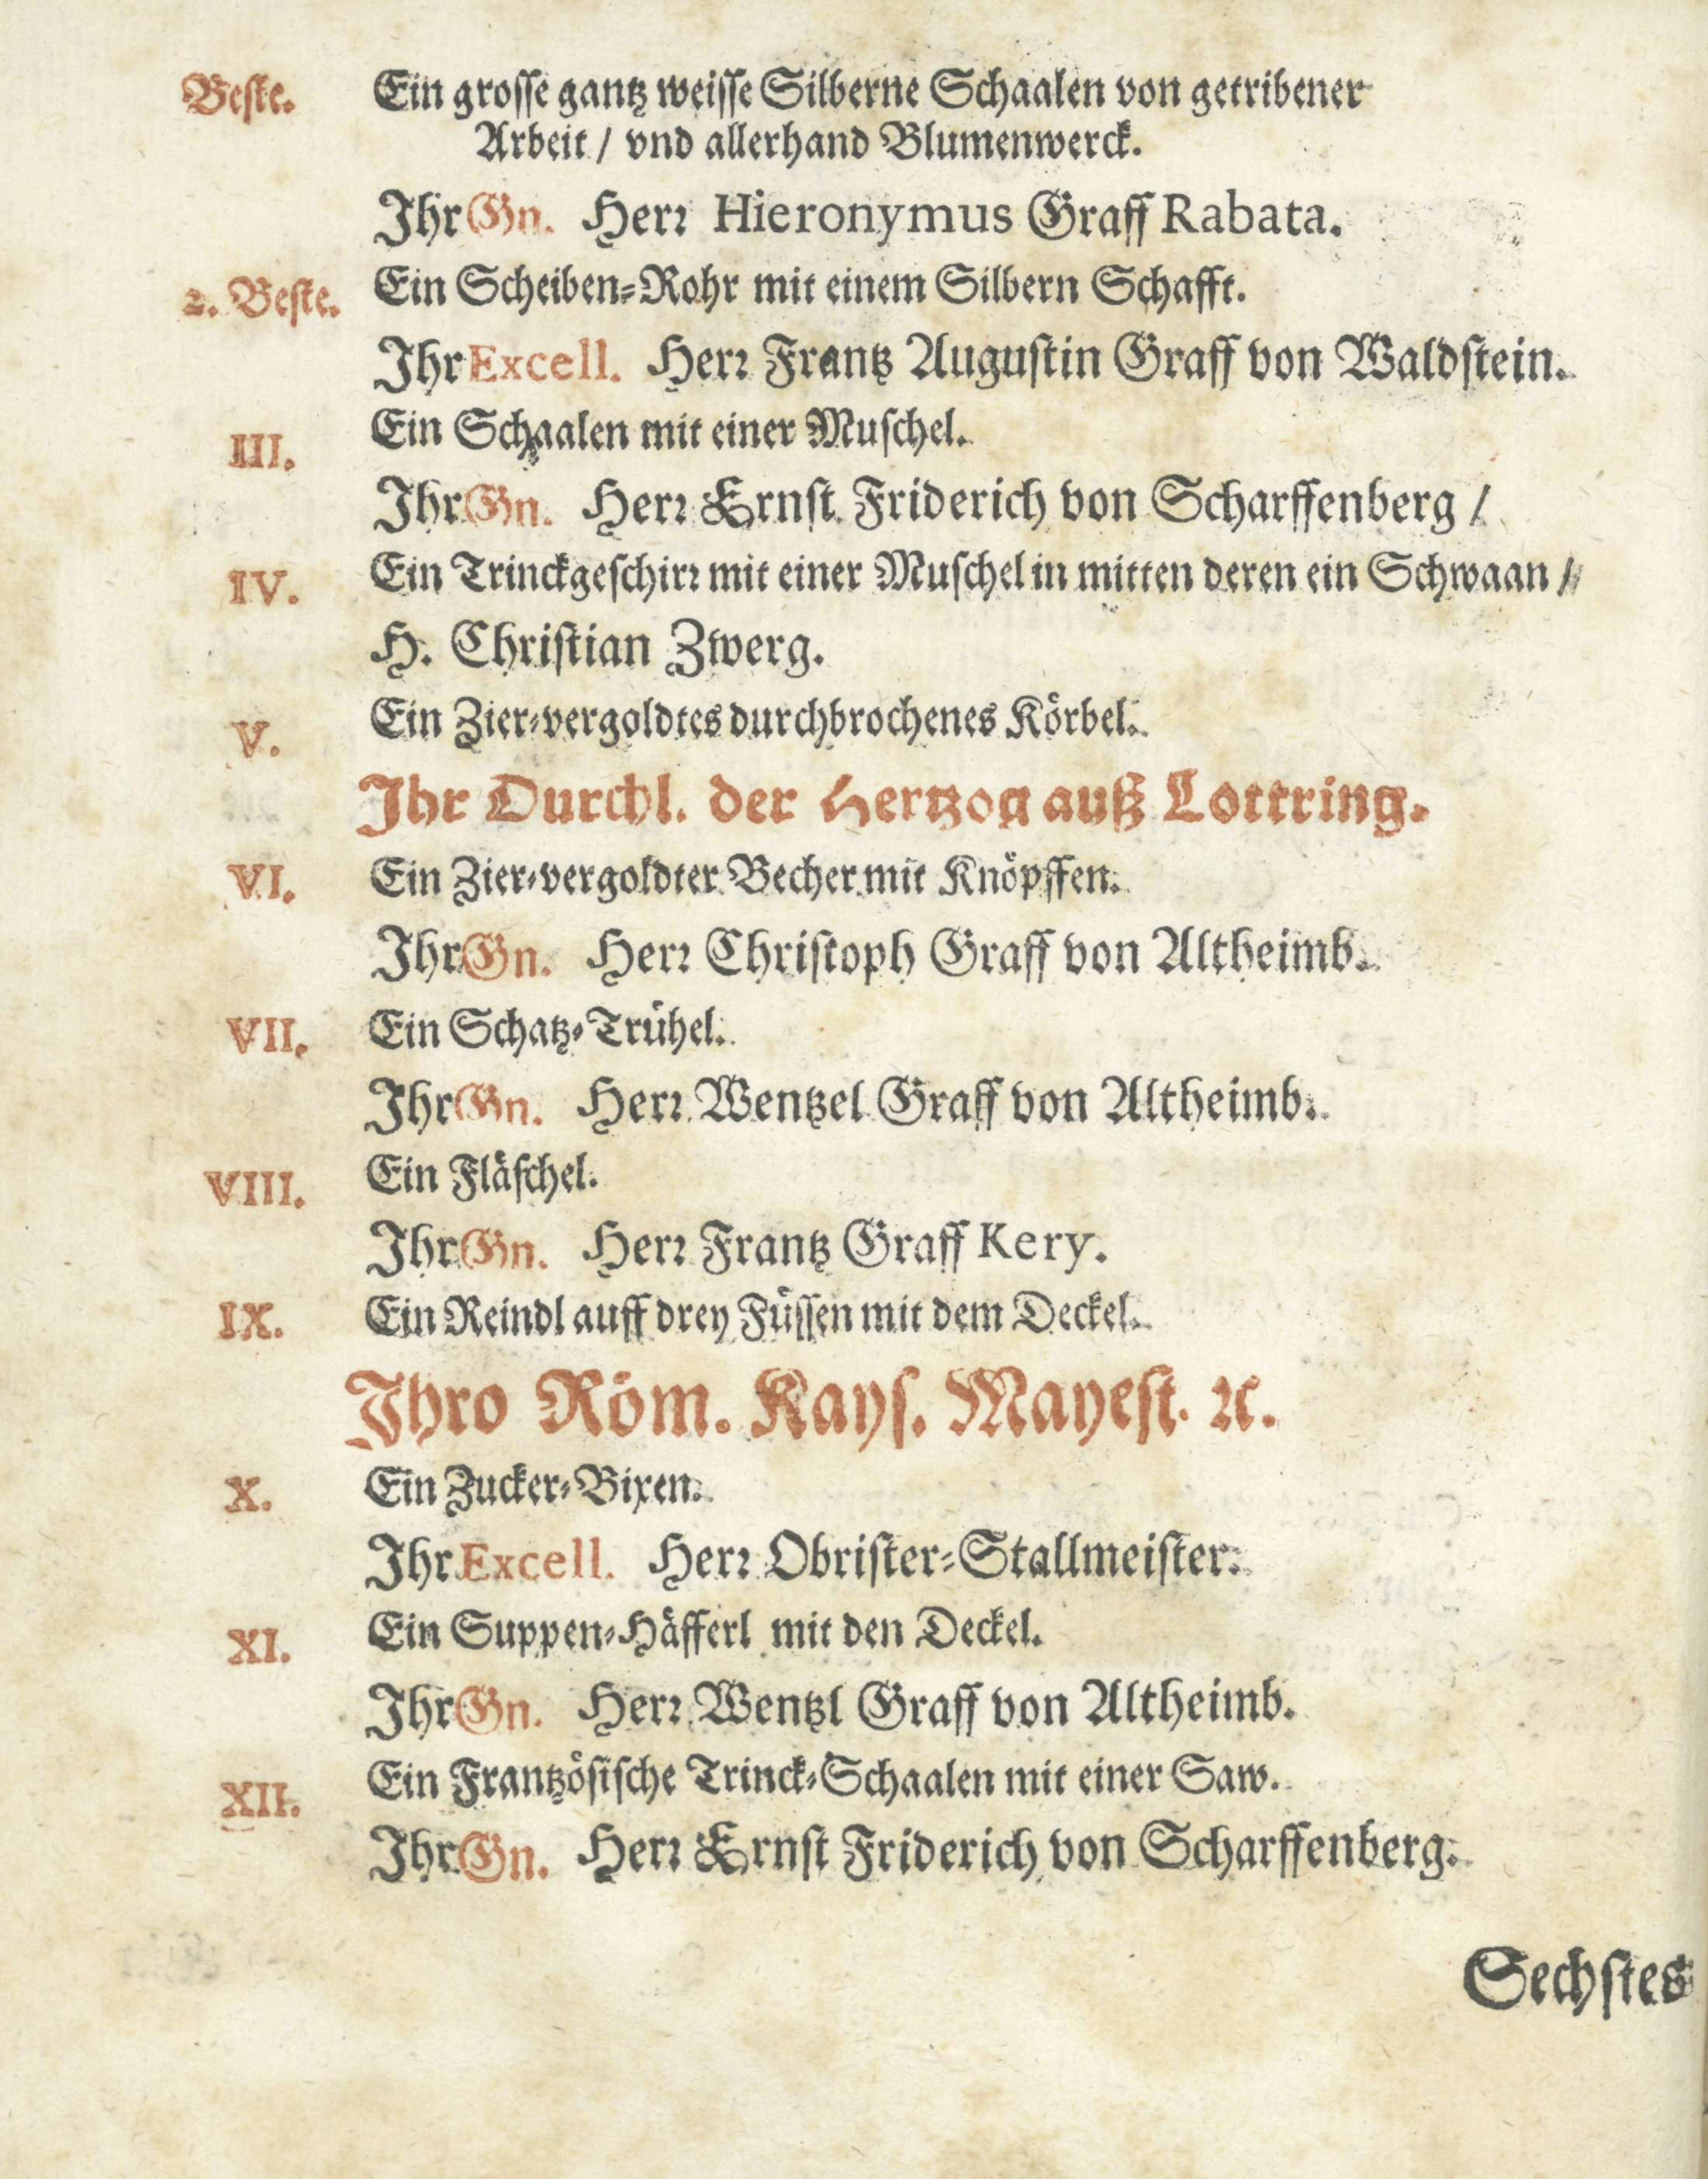 Beste. Ein grosse gantz weisse Silberne Schaalen von getribener
Arbeit / vnd allerhand Blumenwerck.
Ihr Gn. Herr Hieronymus Graff Rabata.
2. Beste. Ein Scheiben-Rohr mit einem Silbern Schafft.
Ihr Excell. Herr Frantz Augustin Graff von Waldstein.
III. Ein Schaalen mit einer Muschel.
Ihr Gn. Herr Ernst Friderich von Scharffenberg /
IV. Ein Trinckgeschirr mit einer Muschel in mitten deren ein Schwaan /
H. Christian Zwerg.
V. Ein Zier-vergoldtes durchbrochenes Körbel.
Ihr Durchl. der Hertzog auß Lottring.
VI. Ein Zier-vergoldter Becher mit Knöpffen.
Ihr Gn. Herr Christoph Graff von Altheimb.
VII. Ein Schatz-Trühel.
Ihr Gn. Herr Wentzel Graff von Altheimb.
VIII. Ein Fläschel.
Ihr Gn. Herr Frantz Graff Kery.
IX. Ein Reindl auff drey Füssen mit dem Deckel.
Ihro Röm. Kays. Mayest. ꝛc.
X. Ein Zucker-Bixen.
Ihr Excell. Herr Obrister-Stallmeister.
XI. Ein Suppen-Häfferl mit den Deckel.
Ihr Gn. Herr Wentzl Graff von Altheimb.
XII. Ein Frantzösische Trinck-Schaalen mit einer Saw.
Ihr Gn. Herr Ernst Friderich von Scharffenberg.
Sechstes